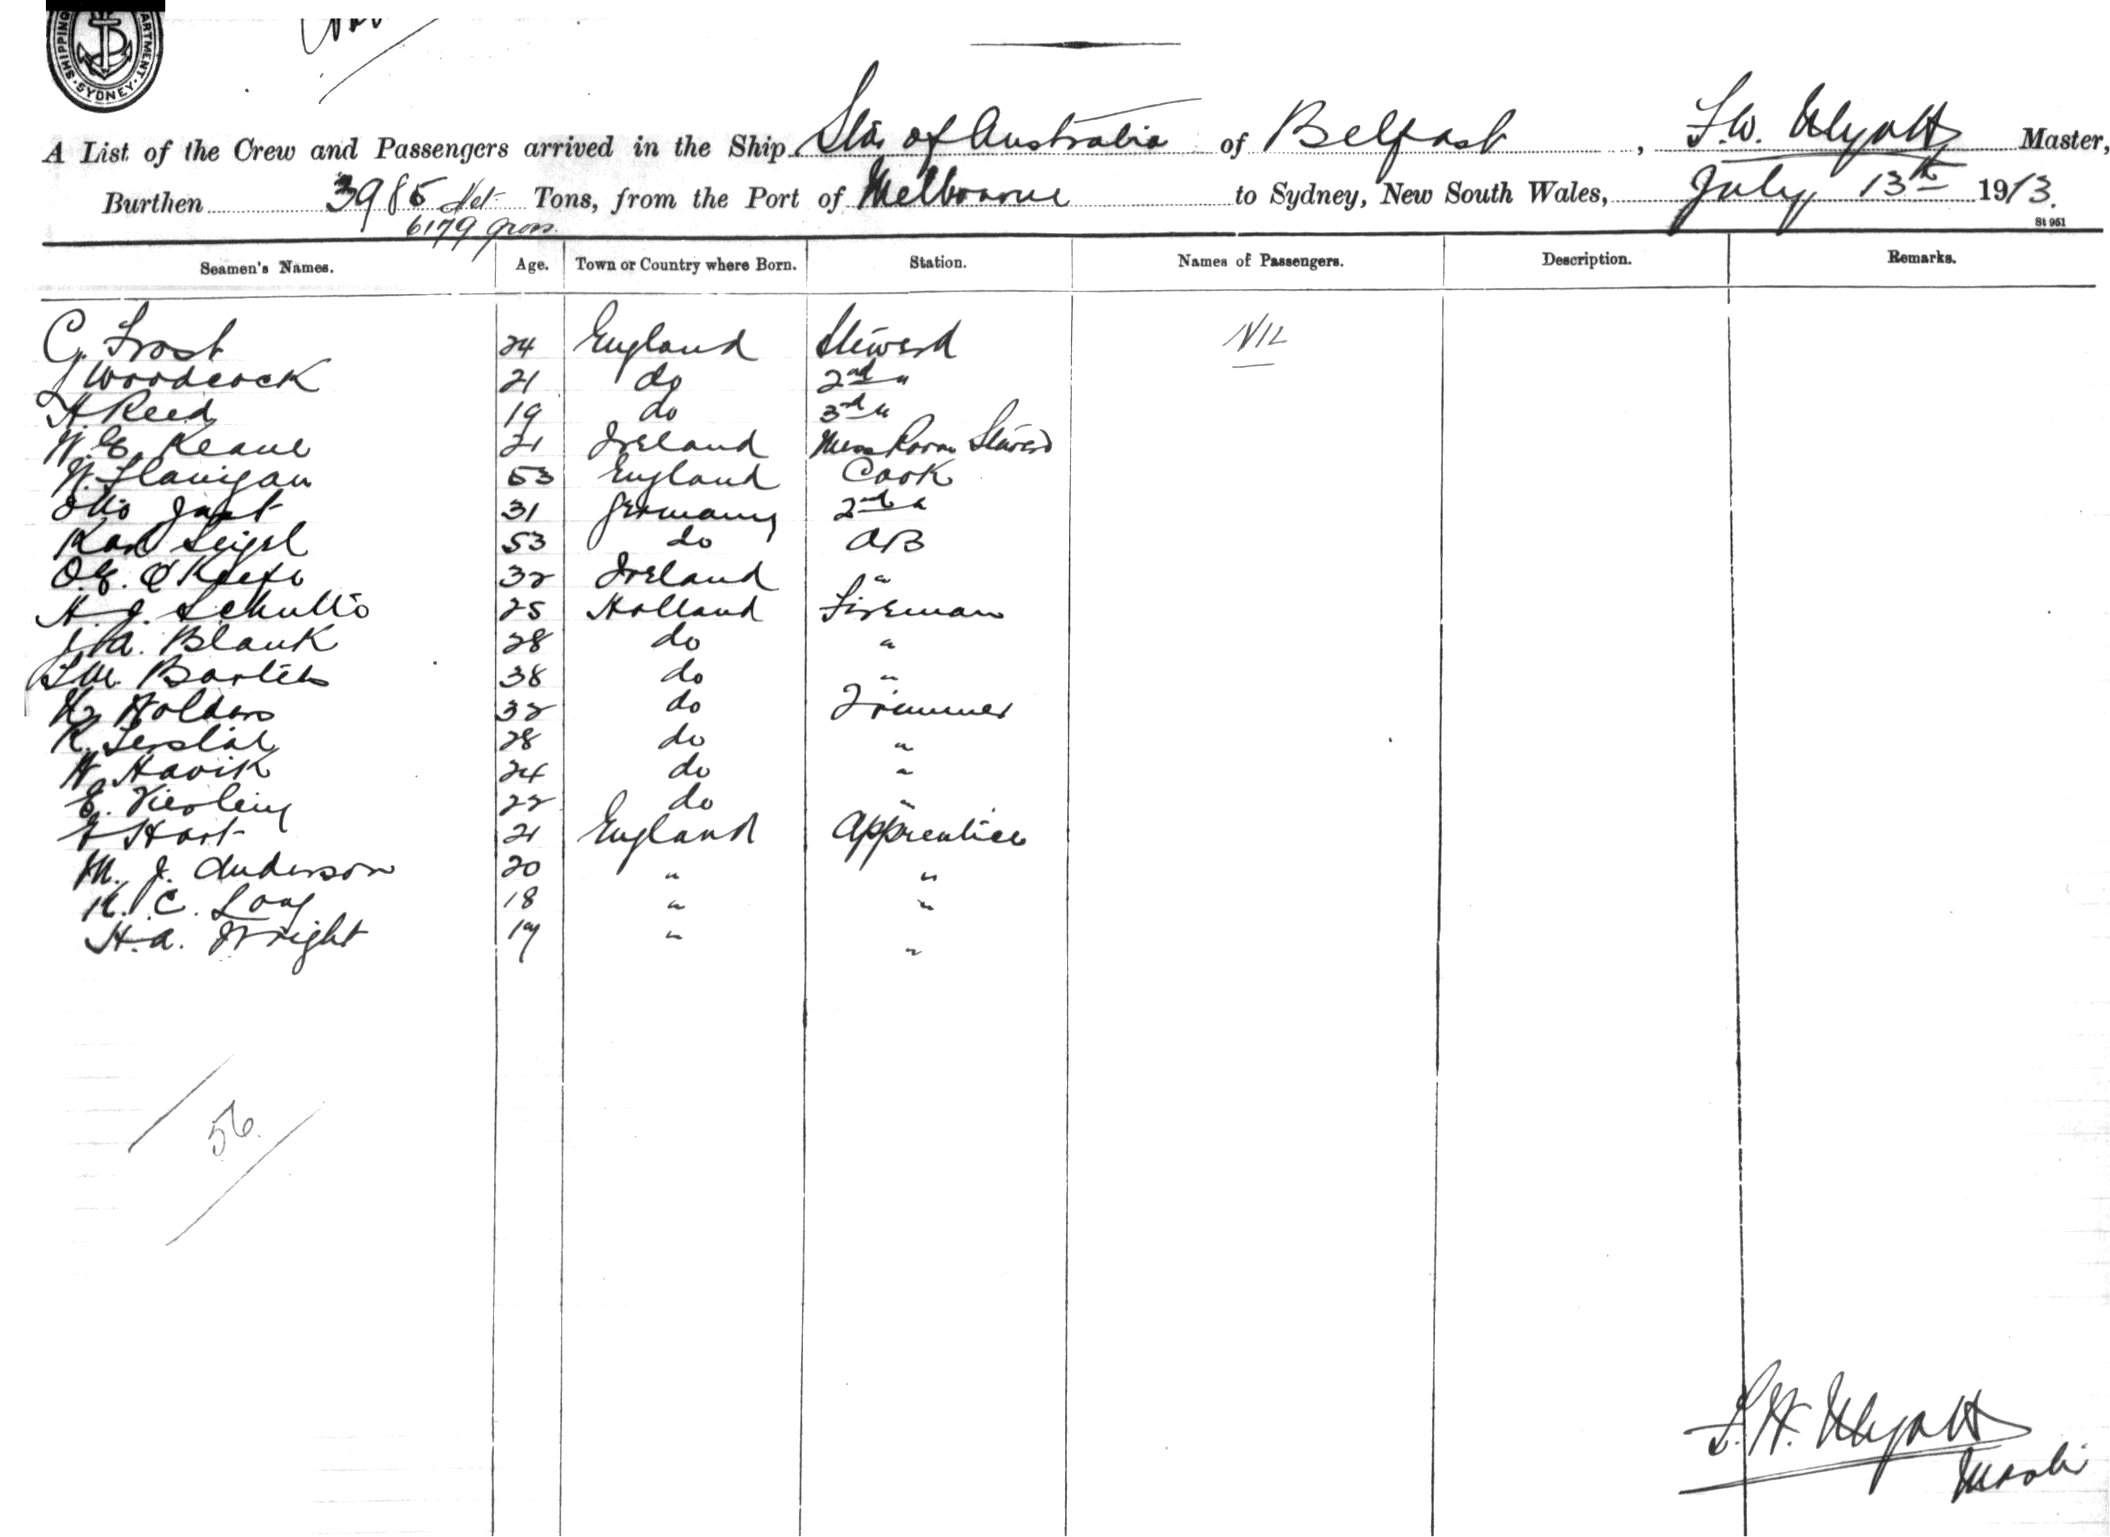 SHIPPING DEPARTMENT. SYDNEY.
A List of the Crew and Passengers arrived in the Ship Star of Australia of Belfast, F.W. Wyatt Master,
Burthen 3985 Net Tons, from the Port of Melbourne to Sydney, New South Wales, July 13th 1913.
6179 gross.
St 951
Seamen's Names. Age. Town or Country where Born. Station. Names of Passengers. Description. Remarks.
C. Frost 24 England Steward NIL
J Woodcock 21 do 2nd "
H Reed 19 do 3rd "
W. E. Keane 21 Ireland Mess Room Steward
W. Flanigan 53 England Cook
Otto Just 31 Germany 2nd "
Karl Seigel 53 do AB
O.E. O'Keefe 32 Ireland "
H. J. Schulto 25 Holland Fireman
J A. Blank 28 do "
Bartels 38 do "
H. Holders 32 do Trimmer
K. 28 do "
W. Havik 24 do "
E. Vierling 22 do "
F Hart 21 England Apprentice
M. J. Anderson 20 " "
R. C. Long 18 " "
H. A. Wright 17 " "
56
F. W. Wyatt
Master